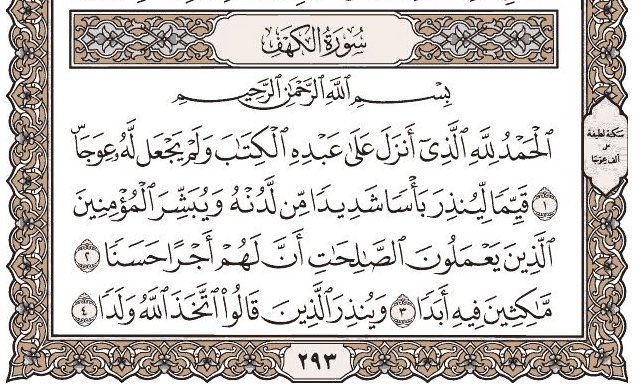 سُورَةُ الكَهْفِ
بِسْمِ اللَّهِ الرَّحْمَٰنِ الرَّحِيمِ
الْحَمْدُ لِلَّهِ الَّذِي أَنزَلَ عَلَىٰ عَبْدِهِ الْكِتَابَ وَلَمْ يَجْعَل لَّهُ عِوَجَاۜ
١ قَيِّمًا لِّيُنذِرَ بَأْسًا شَدِيدًا مِّن لَّدُنْهُ وَيُبَشِّرَ الْمُؤْمِنِينَ
الَّذِينَ يَعْمَلُونَ الصَّالِحَاتِ أَنَّ لَهُمْ أَجْرًا حَسَنًا ٢
مَّاكِثِينَ فِيهِ أَبَدًا ٣ وَيُنذِرَ الَّذِينَ قَالُوا اتَّخَذَ اللَّهُ وَلَدًا ٤
سكتة لطيفة
على
ألف عِوَجَا
٢٩٣